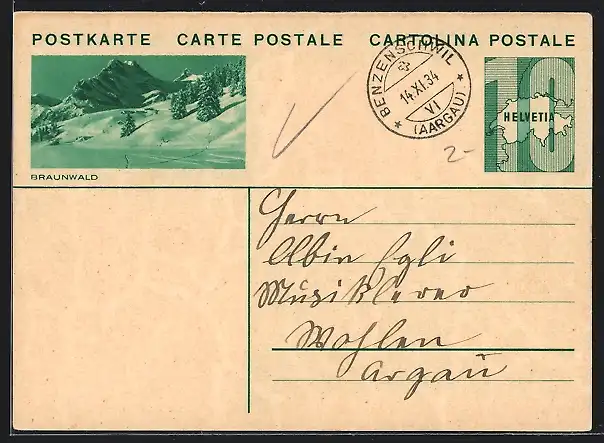 POSTKARTE CARTE POSTALE CARTOLINA POSTALE
BENZENSCHWIL
14.XI.34
VI
(AARGAU)
10
HELVETIA
2-
BRAUNWALD
Herrn
Albin Egli
Musiklerer
Wohlen
Argau